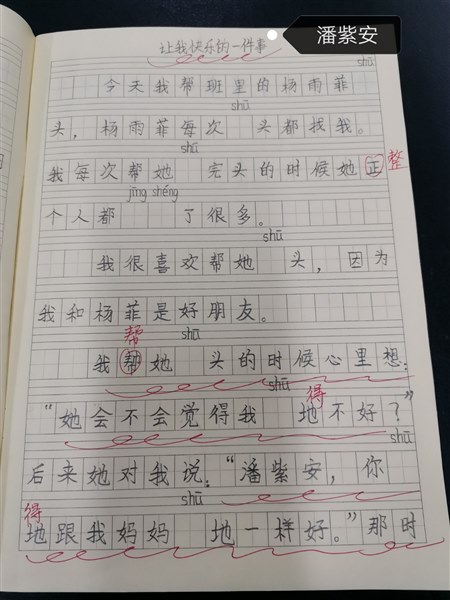 潘紫安
让我快乐的一件事
shū
今天我帮班里的杨雨菲
shū
头，杨雨菲每次 头都找我。
shū
我每次帮她 完头的时候她正 整
jīng shéng
个人都 了很多。
shū
我很喜欢帮她 头，因为
我和杨菲是好朋友。
帮 shū
我帮她 头的时候心里想：
shū 得
“她会不会觉得我 地不好？”
shū
后来她对我说：“潘紫安，你
得 shū
地跟我妈妈 地一样好。”那时